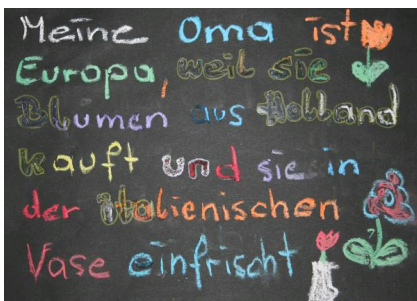 Meine Oma ist
Europa, weil sie
Blumen aus Holland
kauft und sie in
der italienischen
Vase einfrischt